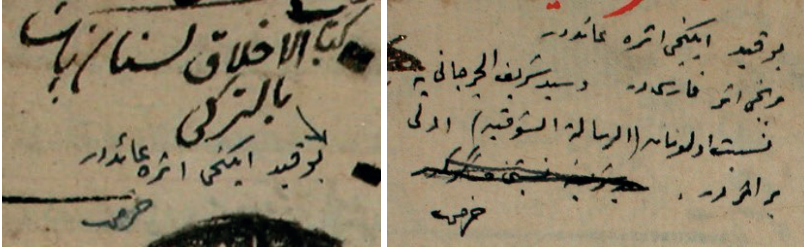 كتاب الاخلاق لسنان پاشا
بالتركى
بو قيد ايكنجى اثره عائددر
خرمى
بو قيد ايكنجى اثره عائددر
برنجى اثر فارسى در و سيد شريف الجرجانى يه
نسبت اولونان (الرسالة الشوقيه) ادلى
بر اثر در .